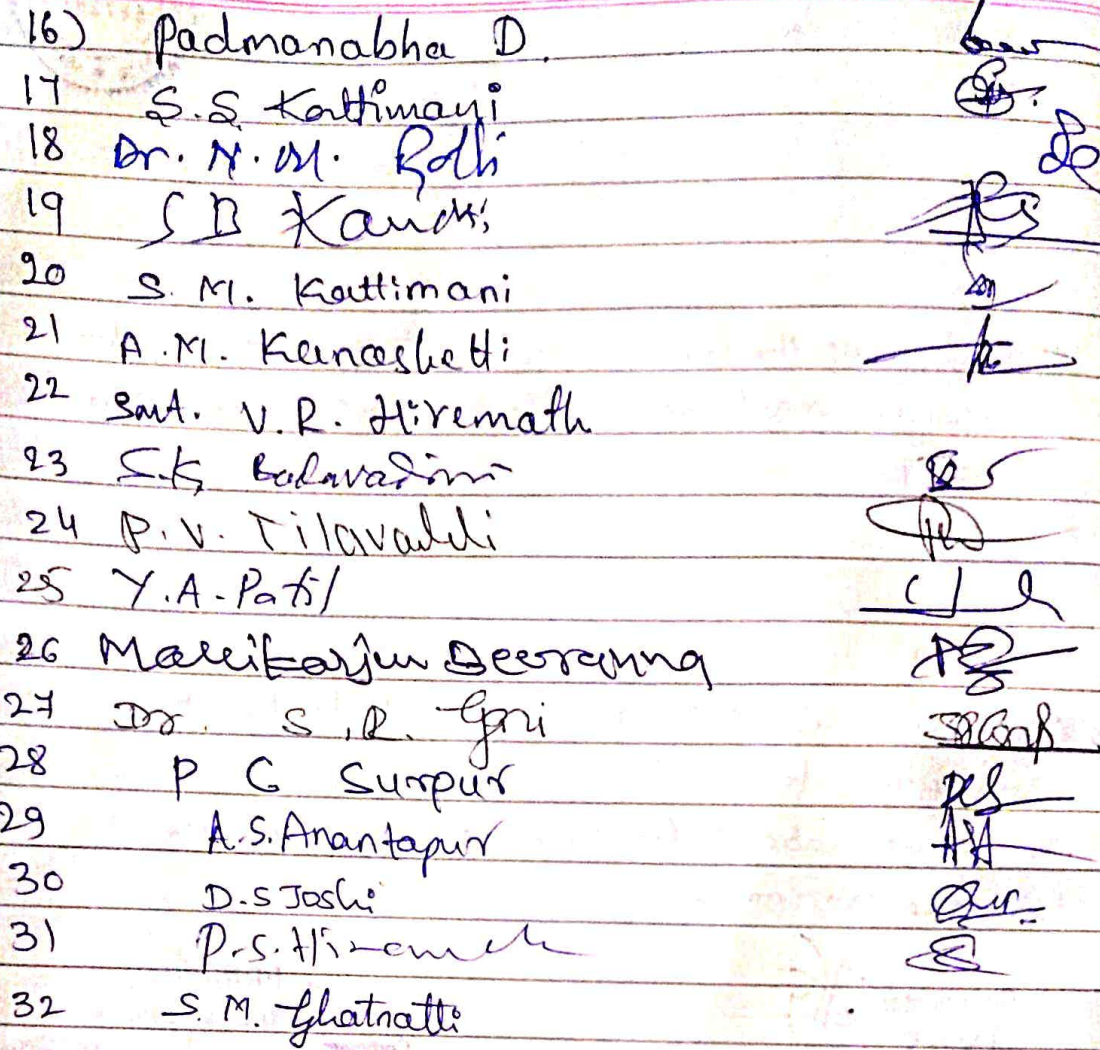 16) Padmanabha D.
17 S.S Kattimani
18 Dr. N. M. Rolli
19 S B Kanchi
20 S. M. Kattimani
21 A.M. Kanashetti
22 Smt. V.R. Hiremath
23 S.K
24 P.V. Tilavalli
25 Y.A-Patil
26 Mallikarjun Deeranna
27 Dr. S.R.
28 P G Surpur
29 A.S.Anantapur
30 D.S Joshi
31 P.S.Hiremath
32 S.M. Ghatnatti